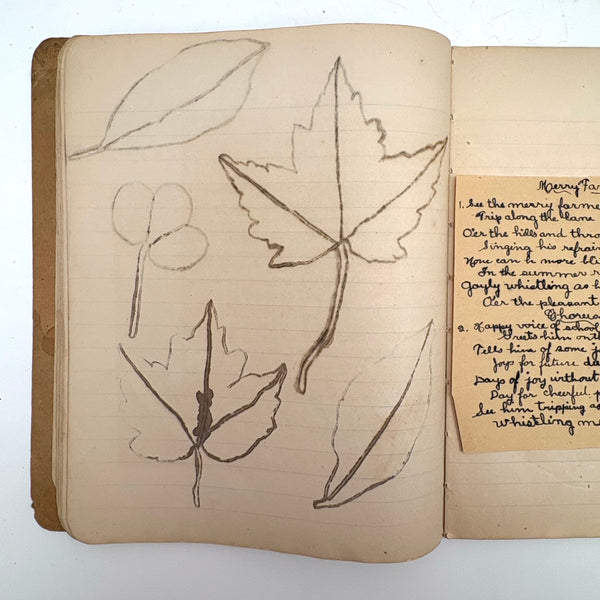 Merry Far
1. See the merry farme
Trip along the lane
O'er the hills and thro
Singing his refrain
None can be more bli
In the summer r
Gayly whistling as h
O'er the pleasant
Chorus
2. Happy voice of school
Greets him on th
Tells him of some j
Joys for future da
Days of joy without
Day for cheerful p
See him tripping as
Whistling me